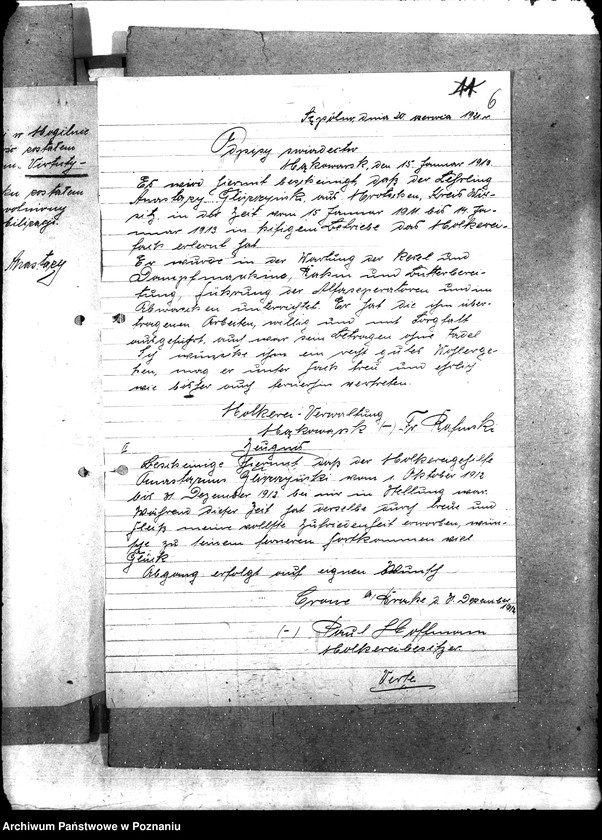 i w Mogilnie
postałem
Vertuty-
postałem
zwolniony
Anastazy
11 6
dnia 20 czerwca 1921 r.
Odpisy świadectw
Mąkowarsk, den 15 Januar 1913.
Es wird hiermit bescheinigt, daß der Lehrling
Anastazy aus Mrotschen, Kreis Wir-
sitz in der Zeit vom 15 Januar 1911 bis 14 Ja-
nuar 1913 in hisigem Betriebe das Molkerei-
fach erlernt hat.
Er wurde in der Wartung der Kesel und
Dampfmaschine, Rahm und Butterberei-
tung, führung der Alfaseperatoren und im
Abwaschen unterrichtet. Er hat die ihm über-
tragenen Arbeiten, willig und mit Sorgfalt
ausgeführt, auch war sein Betragen ohne Tadel
Ich wünsche ihm ein recht gutes Wohlerge-
hen, mag er unser fach treu und ehrlich
wie bisher auch fernerhin vertreten.
Molkerei-Verwaltung
Mąkowarsk (-) Fr.
II Zeugnis
Bescheinige hiermit daß der Molkereigehilfe
Anastasius vom 1. Oktober 1912
bis 31 Dezember 1912 bei mir in Stellung war.
Während dieser Zeit hat derselbe durch treue und
Fleiß meine vollste Zufriedenheit erworben, wün-
sche zu seinem ferneren fortkommen viel
Glück
Abgang erfolgt auf eignen Wunsch
Crone a/ Brahe d 31. Dezember
1912
(-) Paul Hoffmann
Molkereibesitzer
Verte
Archiwum Państwowe w Poznaniu